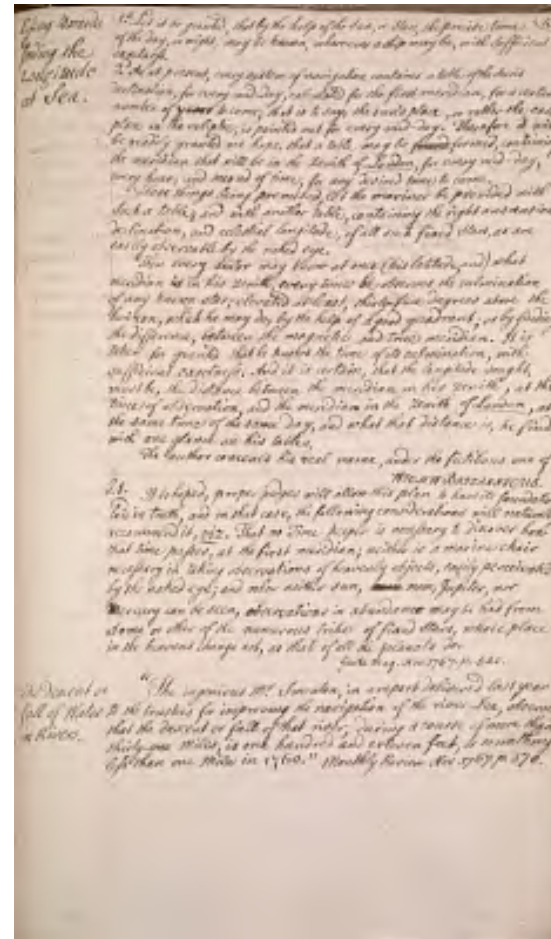 finding the
Longitude
at Sea.
1st Let it be granted, that by the help of the Sun, or Stars, the precise time
of the day, or night, may be known, wheresoever a ship may be, with sufficient
exactness.
2. As at present, every system of navigation contains a table of the sun's
declination, for every mid-day, calculated for the first meridian, for a certain
number of years to come; that is to say, the sun's place, or rather the
place in the ecliptic, is pointed out for every mid-day. Therefore it will
be readily granted we hope, that a table may be formed, containing
the meridian that will be in the Zenith of London, for every mid-day,
every hour, and second of time, for any desired time to come.
These things being premised, let the mariner be provided with
such a table, and with another table, containing the right ascension
declination, and celestial longitude, of all such fixed stars, as are
easily observable by the naked eye.
Thus every sailor may know at once (his latitude, and) what
meridian is in his Zenith, every time he observes the culmination
of any known star, elevated at least, thirty-five degrees above the
horizon, which he may do by the help of a good quadrant, or by finding
the difference, between the magnetic and true meridian. It is
taken for granted that he knows the time of its culmination, with
sufficient exactness. And it is certain, that the longitude sought,
must be, the distance between the meridian in his Zenith, at the
time of observation, and the meridian in the Zenith of London, at
the same time of the same day, and what that distance is, he finds
with one glance on his tables.
The author conceals his real name, under the fictitious one of
P.S. It is hoped, proper judges will allow this plan to have its foundation
laid in truth, and in that case, the following considerations will
recommend it, viz. That no Time keeper is necessary to discover how
that time passes, at the first meridian; neither is a marine chair
necessary in taking observations of heavenly objects, easily perceivable
by the naked eye; and when neither sun, moon, Jupiter, nor
Mercury can be seen, observations in abundance may be had from
some or other of the numerous tribes of fixed stars, whose place
in the heavens change not, as that of all the planets do.
Gent. Mag. Nov. 1767. p.
Descent or
fall of Water
in Rivers.
"The ingenious Mr. Smeaton, in a report delivered last year
to the trustees for improving the navigation of the river Lea, observes
that the descent or fall of that river, during a course of more than
thirty-one Miles, is one hundred and eleven feet, is something
less than one Miles in 1760." Monthly Review Nov. 1767 p. 370.